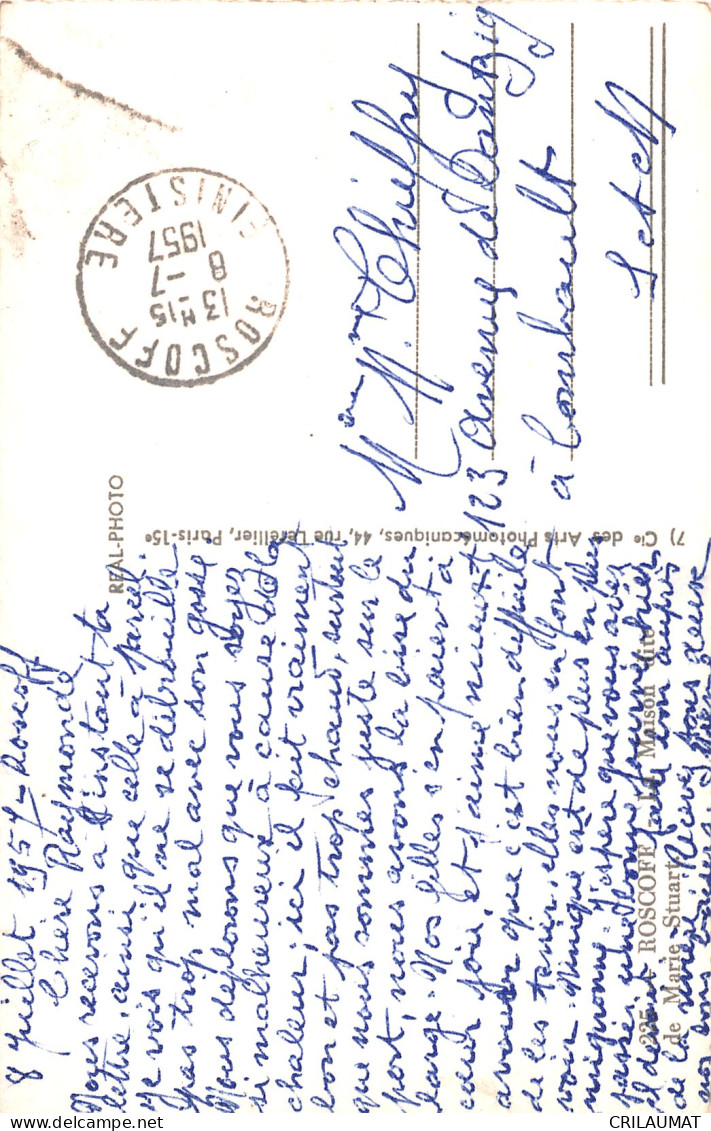 8 juillet 1957 - Roscoff
Chère Raymonde
Nous recevons à l'instant ta
lettre, ainsi que celle à Marcel.
je vois qu'il ne se débrouille
pas trop mal avec son gosse
Nous déplorons que vous soyez
si malheureux à cause de la
chaleur; ici il fait vraiment
bon et pas trop chaud, surtout
que nous sommes juste sur le
port, nous avons la brise du
large. Nos filles s'en paient à
cœur joie, et j'aime mieux t'
avouer que c'est bien difficile
de les tenir, elles nous en font
voir. est de plus en plus
mignonne. J'espère que vous avez
passé une bonne journée hier
il devait faire bon auprès
de la Recevez tous deux
nos bons
REAL-PHOTO
7) Cie des Arts Photomécaniques, 44, rue Letellier, Paris-15e
225 - ROSCOFF La Maison dite
de Marie Stuart
ROSCOFF
13 H 15
8 - 7
1957
FINISTERE
Mme
123 Avenue de Dantzig
à Combault
S et M
CRILAUMAT